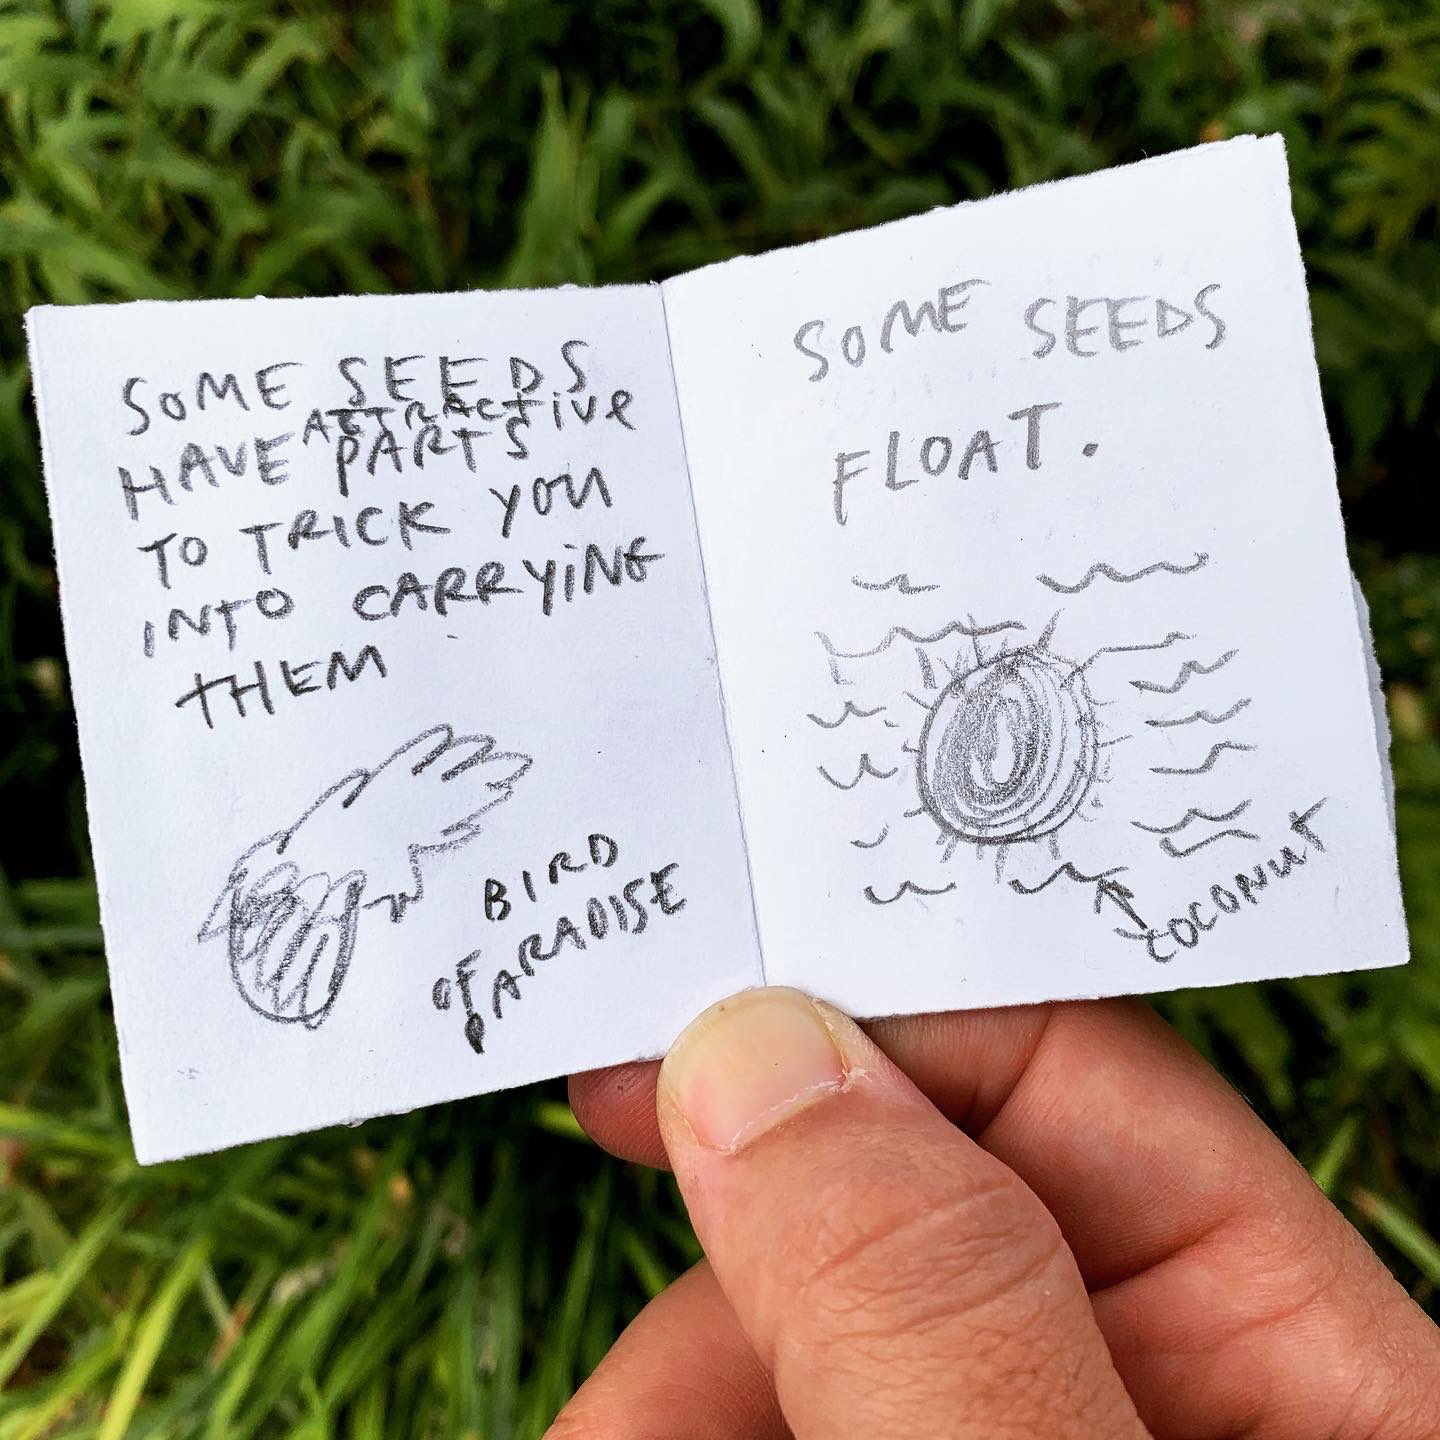 SOME SEEDS
HAVE ATTRACTIVE PARTS
TO TRICK YOU
INTO CARRYING
THEM
BIRD
OF
PARADISE
SOME SEEDS
FLOAT.
COCONUT